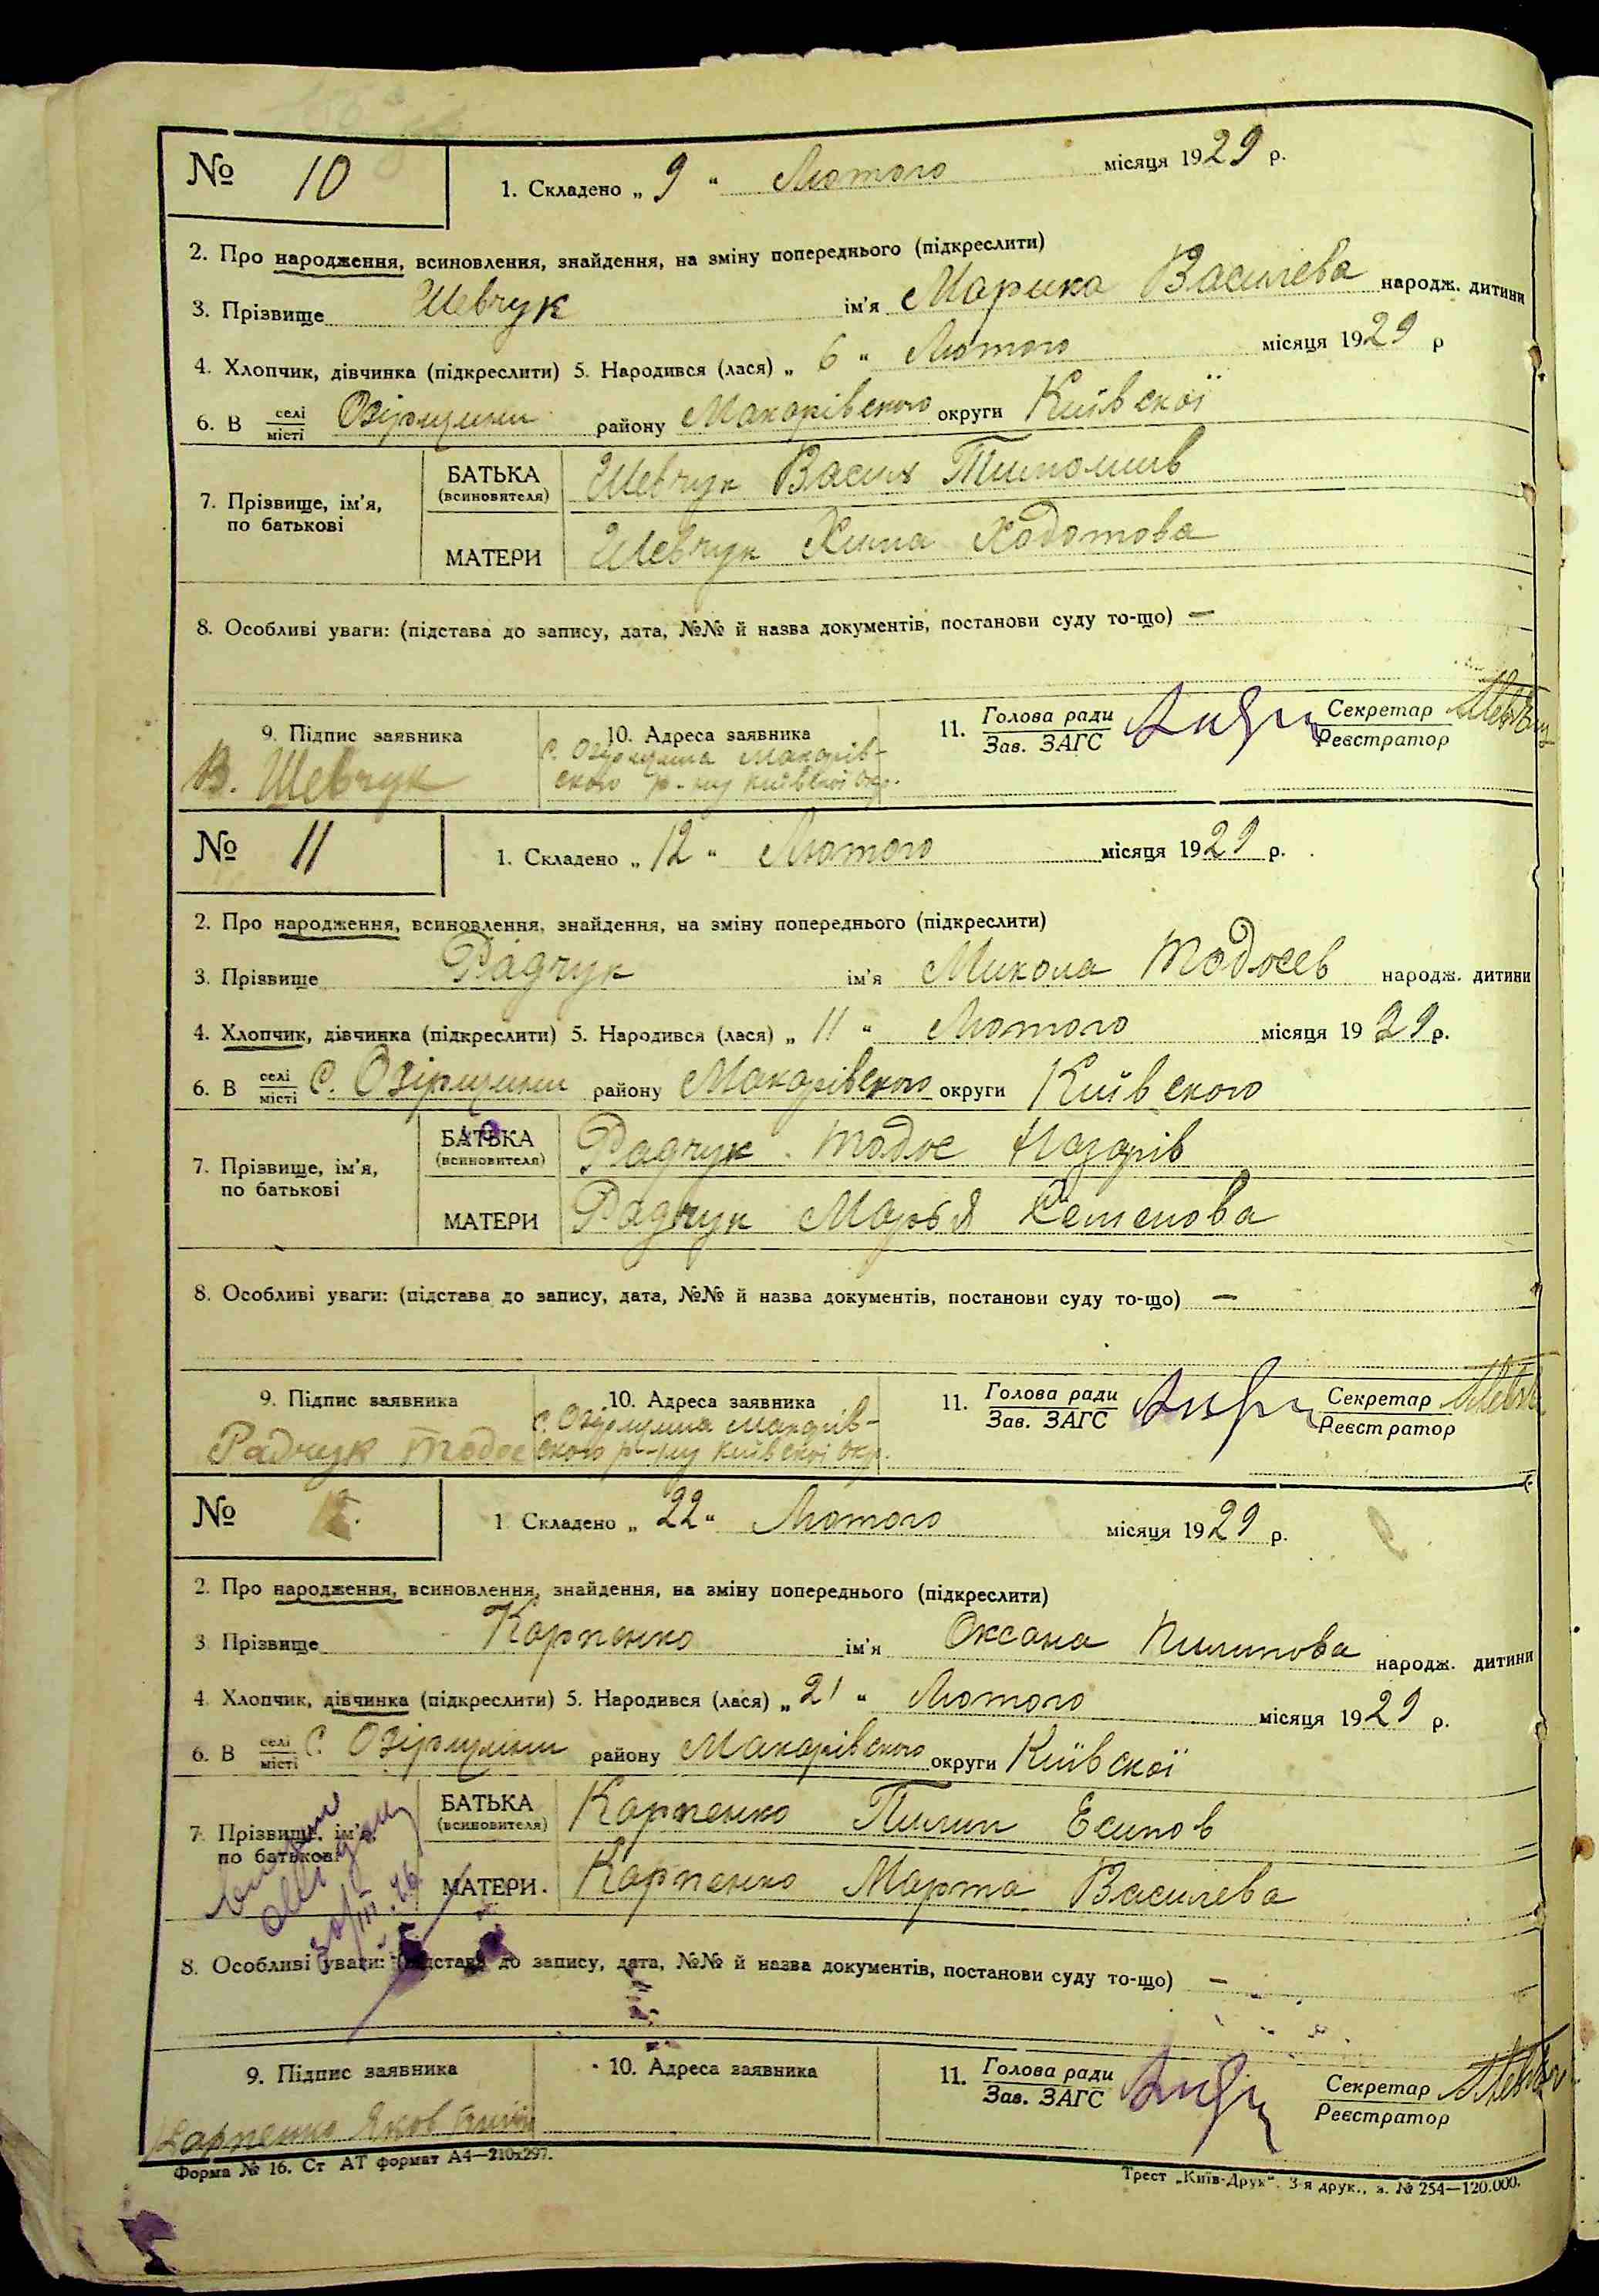 № 10
1. Складено „ 9 “ Лютого місяця 1929 р.
2. Про народження, всиновлення, знайдення, на зміну попереднього (підкреслити)
3. Прізвище Шевчук ім'я Марика Василева народж. дитини
4. Хлопчик, дівчинка (підкреслити) 5. Народився (лася) „ 6 “ Лютого місяця 1929 р
6. В селі місті Озірщини району Макарівського округи Київскої
7. Прізвище, ім'я, по батькові
БАТЬКА (всиновителя) Шевчук Василь
МАТЕРИ Шевчук Ходотова
8. Особливі уваги: (підстава до запису, дата, №№ й назва документів, постанови суду то-що) —
9. Підпис заявника
В. Шевчук
10. Адреса заявника
с. Озірщина Макарів-
ского р-ну Київскої окр.
11. Голова ради
Зав. ЗАГС
Секретар
Реєстратор
№ 11
1. Складено „ 12 “ Лютого місяця 1929 р.
2. Про народження, всиновлення, знайдення, на зміну попереднього (підкреслити)
3. Прізвище Радчук ім'я Микола Тодосев народж. дитини
4. Хлопчик, дівчинка (підкреслити) 5. Народився (лася) „ 11 “ Лютого місяця 1929 р.
6. В селі місті С. Озірщини району Макарівского округи Київского
7. Прізвище, ім'я, по батькові
БАТЬКА (всиновителя) Радчук Тодос Назарів
МАТЕРИ Радчук Марья Семенова
8. Особливі уваги: (підстава до запису, дата, №№ й назва документів, постанови суду то-що) —
9. Підпис заявника
Радчук Тодос
10. Адреса заявника
с. Озірщина Макарів-
ского р-ну Київскої окр.
11. Голова ради
Зав. ЗАГС
Секретар
Реєстратор
№ 12.
1 Складено „ 22 “ Лютого місяця 1929 р.
2. Про народження, всиновлення, знайдення, на зміну попереднього (підкреслити)
3 Прізвище Карпенко ім'я Оксана Пилипова народж. дитини
4. Хлопчик, дівчинка (підкреслити) 5. Народився (лася) „ 21 “ Лютого місяця 1929 р.
6. В селі місті С. Озірщини району Макарівского округи Київскої
7. Прізвище, ім'я, по батькові
БАТЬКА (всиновителя) Карпенко Пилип Есипов
МАТЕРИ. Карпенко Марта Василева
8. Особливі уваги: (підстава до запису, дата, №№ й назва документів, постанови суду то-що) —
9. Підпис заявника
Карпенко Яков
10. Адреса заявника
11. Голова ради
Зав. ЗАГС
Секретар
Реєстратор
Форма № 16. Ст АТ формат А4—210x297.
Трест „Київ-Друк“. 3-я друк., з. № 254—120.000.